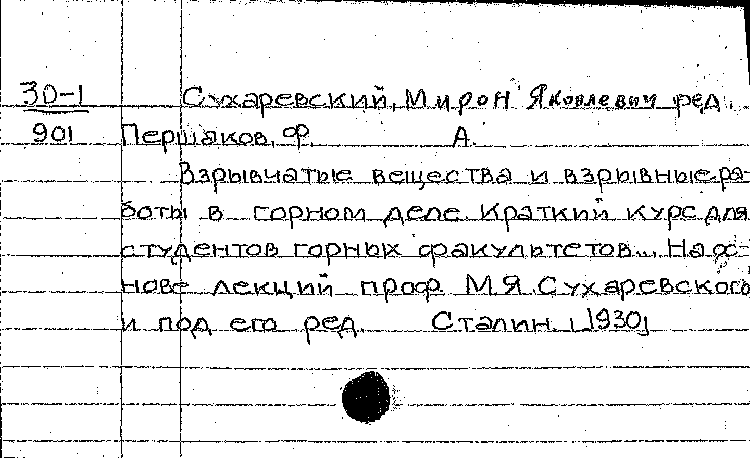 30-1 Сухаревский, Мирон Яковлевич ред.
901 Першаков, Ф. А.
Взрывчатые вещества и взрывные ра-
боты в горном деле. Краткий курс для
студентов горных факультетов... На ос-
нове лекций проф. М.Я. Сухаревского
и под его ред. Сталин. [1930]